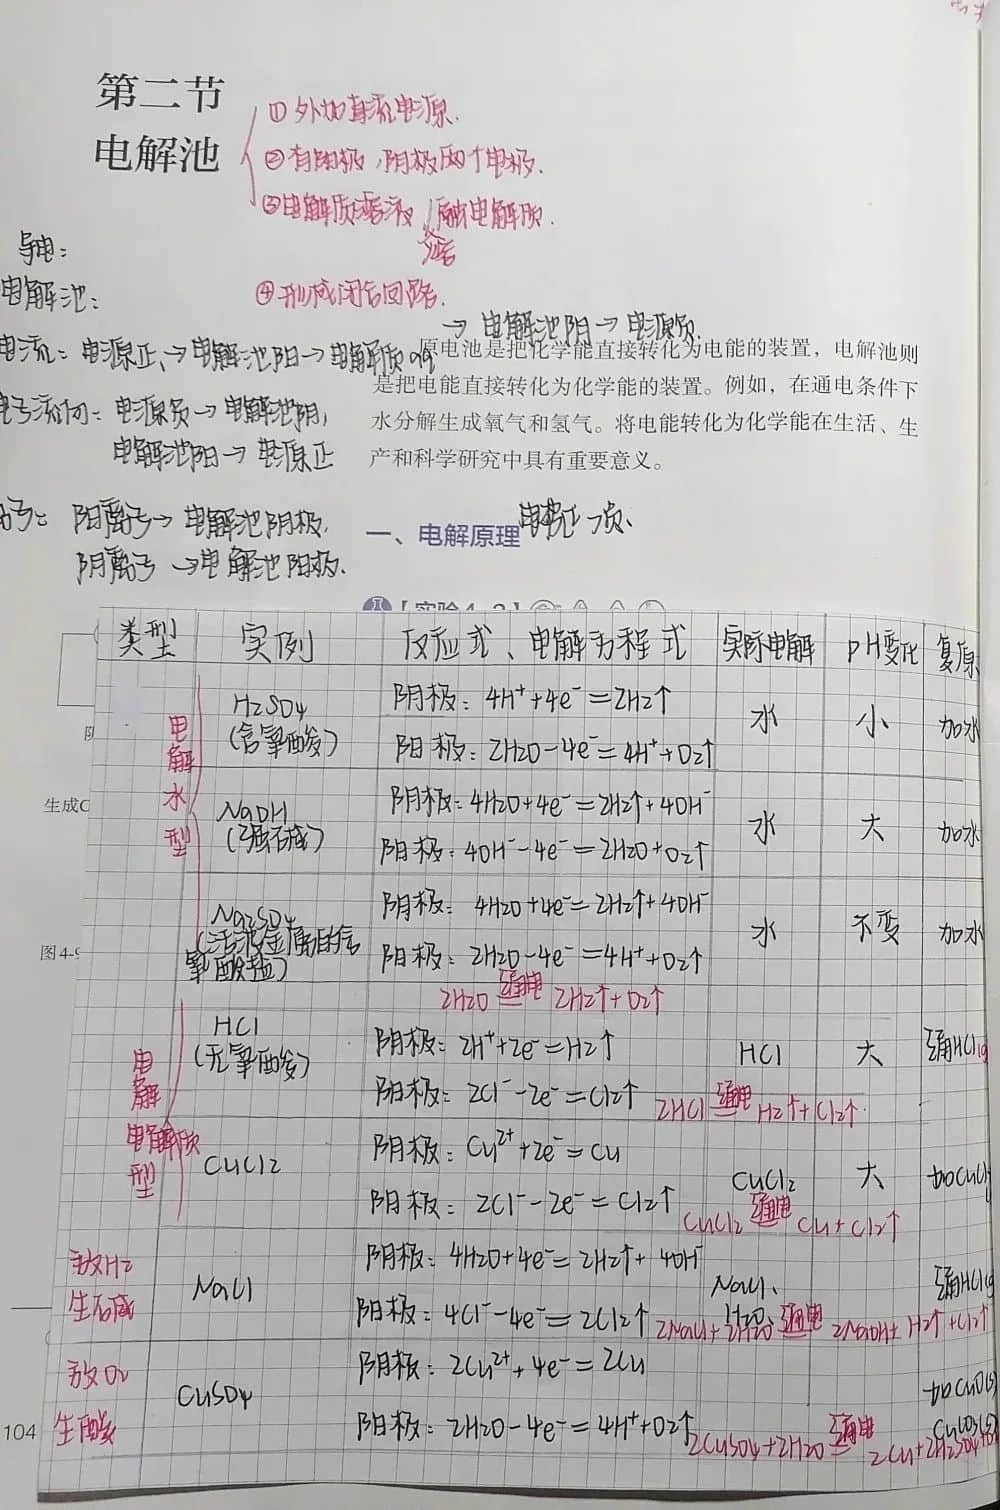 第二节
电解池
①外加直流电源.
②有阳极,阴极两个电极.
③电解质溶液/熔融电解质.
④形成闭合回路.
导电:
电解池:
→电解池阴→电源负
电流:电源正→电解池阳→电解质
原电池是把化学能直接转化为电能的装置,电解池则
是把电能直接转化为化学能的装置。例如,在通电条件下
水分解生成氧气和氢气。将电能转化为化学能在生活、生
产和科学研究中具有重要意义。
电子流向:电源负→电解池阴,
电解池阳→电源正
阳离子→电解池阴极.
阴离子→电解池阳极.
一、电解原理
【实验4-2】
类型 实例 反应式、电解方程式 实际电解 pH变化 复原
电解水型
H₂SO₄
(含氧酸)
阴极:4H⁺+4e⁻=2H₂↑
阳极:2H₂O-4e⁻=4H⁺+O₂↑
水 小 加水
NaOH
(强碱)
阴极:4H₂O+4e⁻=2H₂↑+4OH⁻
阳极:4OH⁻-4e⁻=2H₂O+O₂↑
水 大 加水
生成C
Na₂SO₄
(活泼金属的含
氧酸盐)
阴极:4H₂O+4e⁻=2H₂↑+4OH⁻
阳极:2H₂O-4e⁻=4H⁺+O₂↑
2H₂O 通电 2H₂↑+O₂↑
水 不变 加水
图4-9
电解
电解质
型
HCl
(无氧酸)
阴极:2H⁺+2e⁻=H₂↑
阳极:2Cl⁻-2e⁻=Cl₂↑
HCl 大 通HCl(g)
2HCl 通电 H₂↑+Cl₂↑.
CuCl₂
阴极:Cu²⁺+2e⁻=Cu
阳极:2Cl⁻-2e⁻=Cl₂↑
CuCl₂ 大 加CuCl₂
CuCl₂ 通电 Cu+Cl₂↑
放H₂
生碱
NaCl
阴极:4H₂O+4e⁻=2H₂↑+4OH⁻
阳极:4Cl⁻-4e⁻=2Cl₂↑
NaCl、
H₂O
通HCl(g)
2NaCl+2H₂O 通电 2NaOH+H₂↑+Cl₂↑
放O₂
生酸
CuSO₄
阴极:2Cu²⁺+4e⁻=2Cu
阳极:2H₂O-4e⁻=4H⁺+O₂↑
加CuO(s)
CuCO₃(s)
2CuSO₄+2H₂O 通电 2Cu+2H₂SO₄+O₂
104